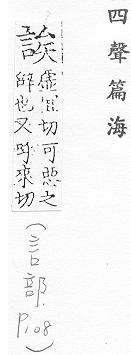 四聲篇海
誒
虛宜切可惡之
辭也又呼來切
(言部.P.108)